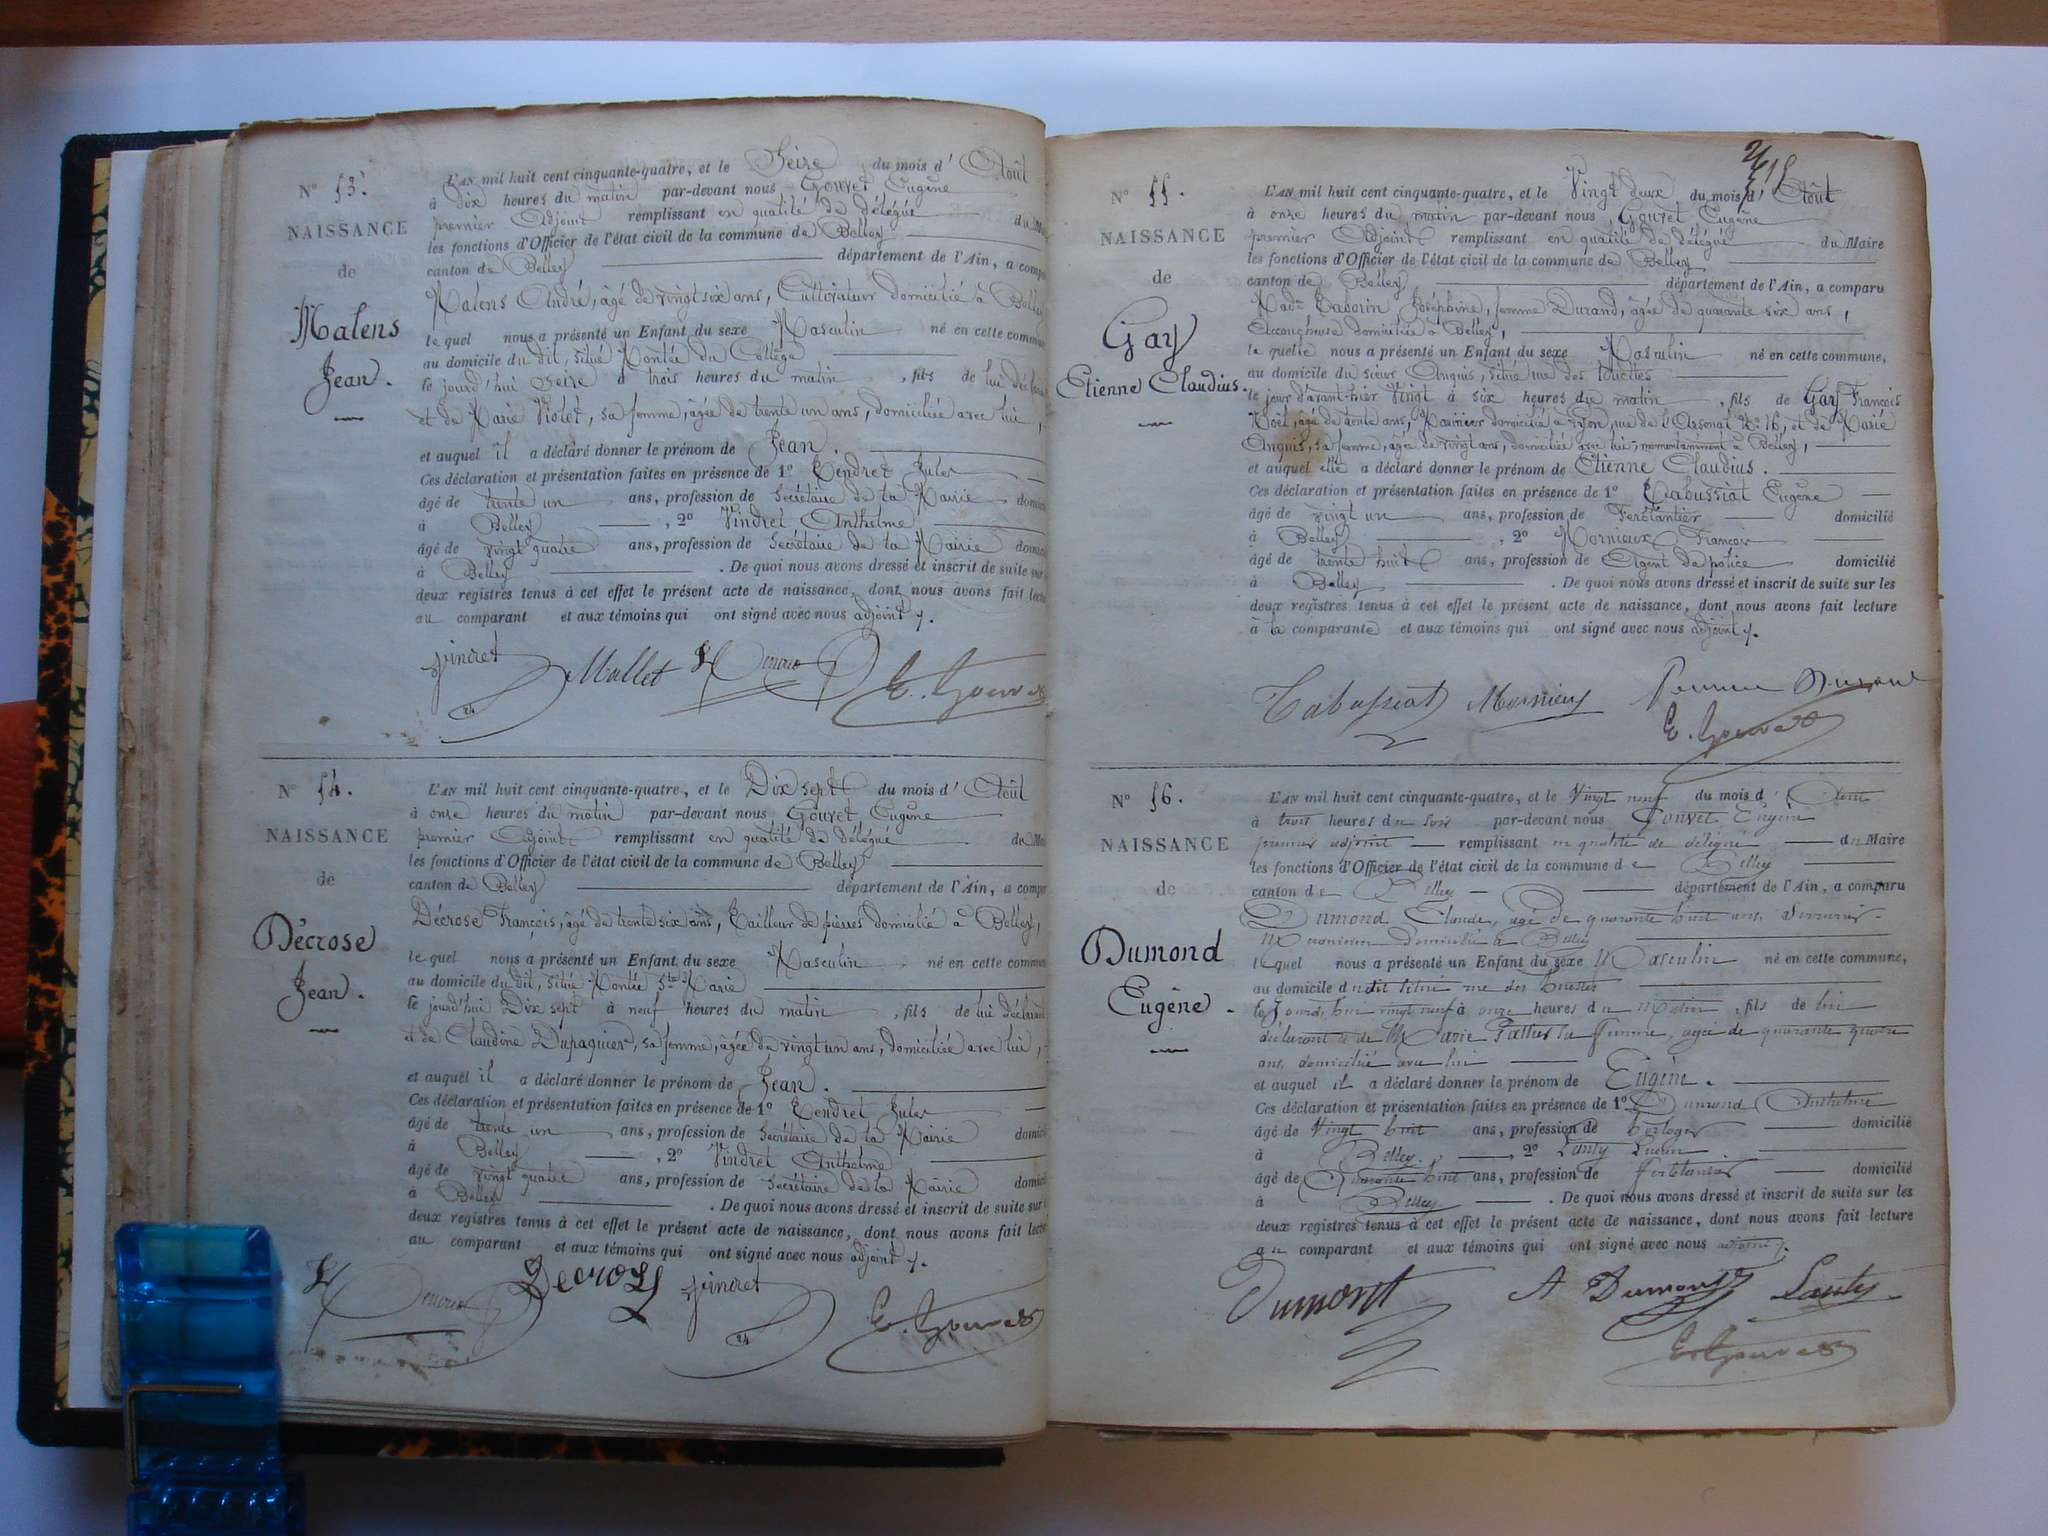 N° 53.
NAISSANCE
de
Malens
Jean.
L'AN mil huit cent cinquante-quatre, et le Seize du mois d'Août
à Dix heures du matin par-devant nous Gouvet Eugène
premier Adjoint remplissant en qualité de délégué du Ma
les fonctions d'Officier de l'état civil de la commune de Belley
canton de Belley département de l'Ain, a compa
Malens André, âgé de vingt six ans, Cultivateur domicilié à Belley
le quel nous a présenté un Enfant du sexe Masculin né en cette commun
au domicile du dit, situé Montée du Collège
le jourd'hui Seize à trois heures du matin, fils de lui décla
et de Marie Violet, sa femme, âgée de trente un ans, domiciliée avec lui,
et auquel il a déclaré donner le prénom de Jean.
Ces déclaration et présentation faites en présence de 1° Tendret Jules
âgé de trente un ans, profession de Secrétaire de la Mairie domici
à Belley, 2° Vindret Anthelme
âgé de vingt quatre ans, profession de Secrétaire de la Mairie domici
à Belley. De quoi nous avons dressé et inscrit de suite sur
deux registres tenus à cet effet le présent acte de naissance, dont nous avons fait lectu
au comparant et aux témoins qui ont signé avec nous adjoint.
Vindret Mallet E. Gouvet
N° 54.
NAISSANCE
de
Décrose
Jean.
L'AN mil huit cent cinquante-quatre, et le Dix sept du mois d'Août
à onze heures du matin par-devant nous Gouvet Eugène
premier Adjoint remplissant en qualité de délégué du Mai
les fonctions d'Officier de l'état civil de la commune de Belley
canton de Belley département de l'Ain, a compar
Décrose François, âgé de trente six ans, Tailleur de pierres domicilié à Belley,
le quel nous a présenté un Enfant du sexe Masculin né en cette commun
au domicile du dit, situé Montée Ste Marie
le jourd'hui Dix sept à neuf heures du matin, fils de lui déclarant
et de Claudine Dupaquier, sa femme, âgée de vingt un ans, domiciliée avec lui,
et auquel il a déclaré donner le prénom de Jean.
Ces déclaration et présentation faites en présence de 1° Tendret Jules
âgé de trente un ans, profession de Secrétaire de la Mairie domici
à Belley, 2° Vindret Anthelme
âgé de vingt quatre ans, profession de Secrétaire de la Mairie domici
à Belley. De quoi nous avons dressé et inscrit de suite sur
deux registres tenus à cet effet le présent acte de naissance, dont nous avons fait lectu
au comparant et aux témoins qui ont signé avec nous adjoint.
Vindret E. Gouvet
N° 55.
NAISSANCE
de
Gay
Etienne Claudius.
L'AN mil huit cent cinquante-quatre, et le Vingt deux du mois d'Août
à onze heures du matin par-devant nous, Gouvet Eugène
premier Adjoint remplissant en qualité de délégué du Maire
les fonctions d'Officier de l'état civil de la commune de Belley
canton de Belley département de l'Ain, a comparu
Made Taborin Joséphine, femme Durand, âgée de quarante six ans,
Accoucheuse domiciliée à Belley,
la quelle nous a présenté un Enfant du sexe Masculin né en cette commune,
au domicile du sieur Anquis, situé rue des
le jour d'avant-hier Vingt à six heures du matin, fils de Gay François
Noël, âgé de trente ans, domicilié à Lyon, rue de l'Arsenal N° 16, et de Marie
Anquis, sa femme, âgée de vingt ans, domiciliée avec lui, momentanément à Belley,
et auquel elle a déclaré donner le prénom de Etienne Claudius.
Ces déclaration et présentation faites en présence de 1° Tabussiat Eugène
âgé de vingt un ans, profession de Ferblantier domicilié
à Belley, 2° Mornieux François
âgé de trente huit ans, profession de Agent de police domicilié
à Belley. De quoi nous avons dressé et inscrit de suite sur les
deux registres tenus à cet effet le présent acte de naissance, dont nous avons fait lecture
à la comparante et aux témoins qui ont signé avec nous adjoint.
Tabussiat Mornieux femme Durand
E. Gouvet
N° 56.
NAISSANCE
de
Dumond
Eugène.
L'AN mil huit cent cinquante-quatre, et le Vingt neuf du mois d'Août
à trois heures du soir par-devant nous Gouvet Eugène
premier adjoint remplissant en qualité de délégué du Maire
les fonctions d'Officier de l'état civil de la commune de Belley
canton de Belley département de l'Ain, a comparu
Dumond Claude, âgé de quarante huit ans, Serrurier
Mécanicien domicilié à Belley
le quel nous a présenté un Enfant du sexe Masculin né en cette commune,
au domicile du dit situé rue des
le Jourd'hui vingt neuf à onze heures du Matin, fils de lui
déclarant et de Marie sa femme, agée de quarante quatre
ans, domiciliée avec lui
et auquel il a déclaré donner le prénom de Eugène.
Ces déclaration et présentation faites en présence de 1° Dumond Anthelme
âgé de Vingt huit ans, profession de horloger domicilié
à Belley, 2° Lanty
âgé de Quarante huit ans, profession de ferblantier domicilié
à Belley. De quoi nous avons dressé et inscrit de suite sur les
deux registres tenus à cet effet le présent acte de naissance, dont nous avons fait lecture
au comparant et aux témoins qui ont signé avec nous adjoint.
Dumont A Dumont Lanty
E. Gouvet